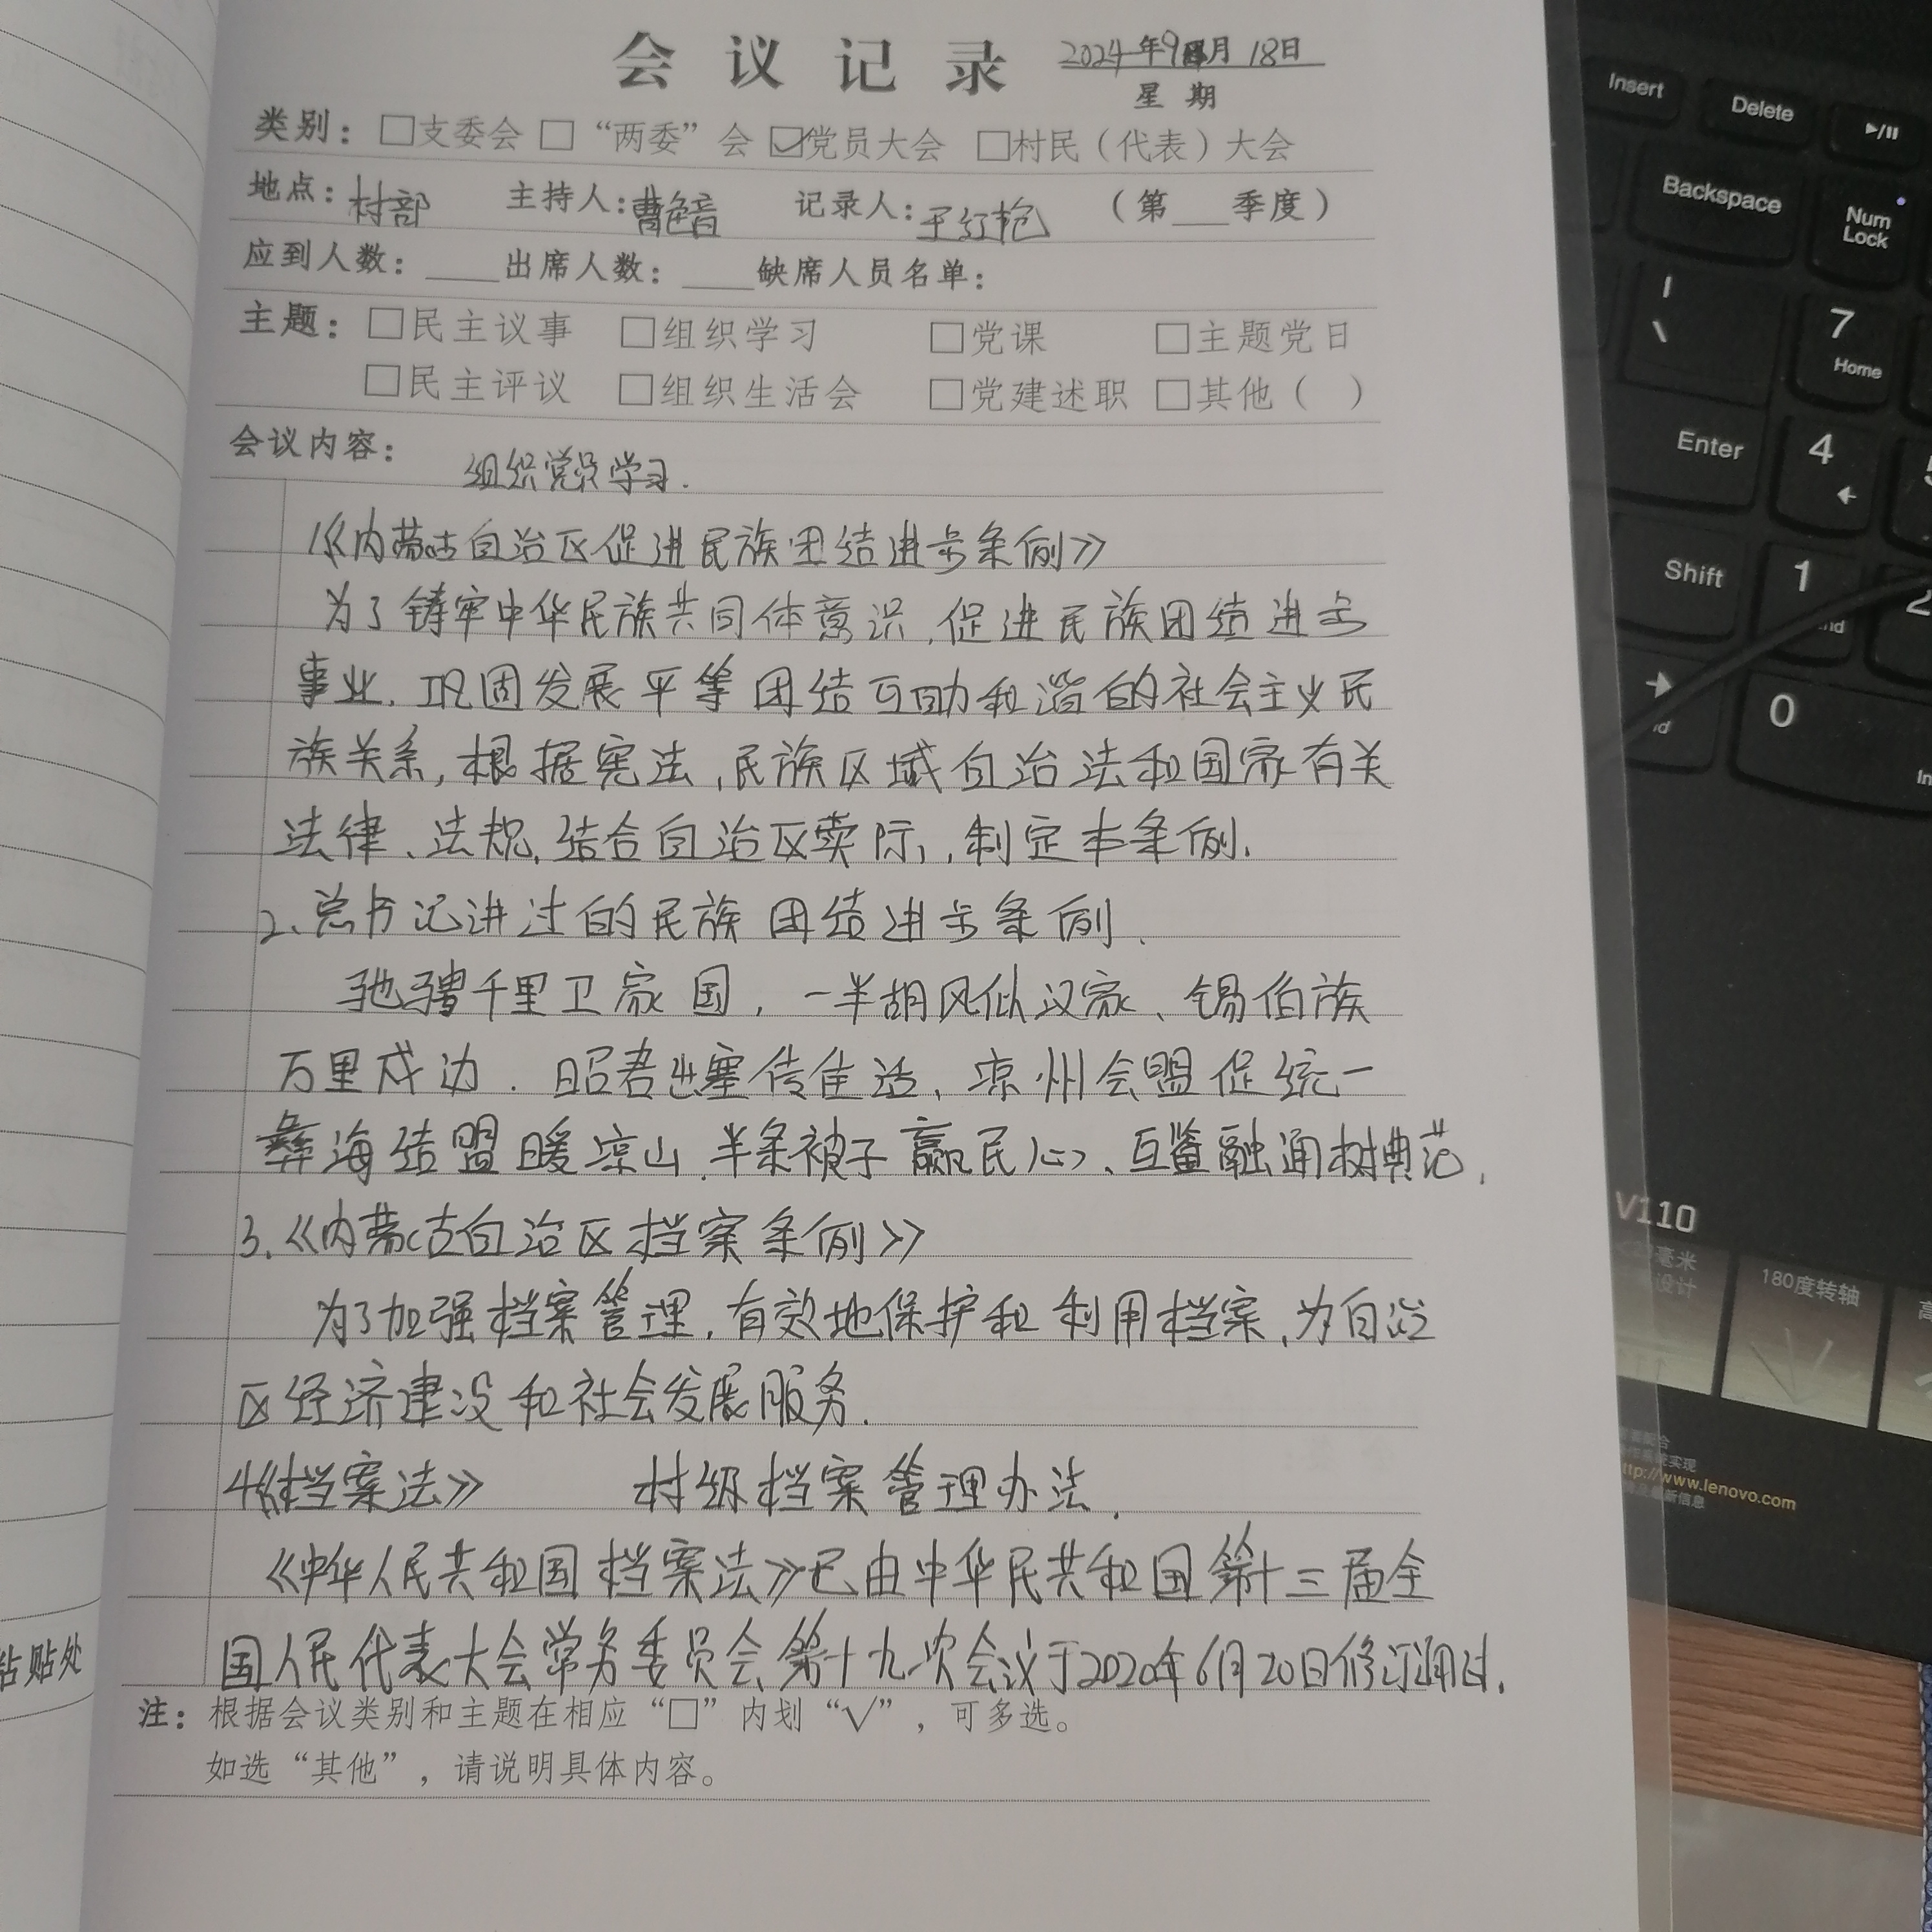 会议记录
2024年9月18日
星期
类别：□支委会 □“两委”会 ☑党员大会 □村民（代表）大会
地点：村部 主持人：曹 记录人：红艳 （第___季度）
应到人数：____出席人数：____缺席人员名单：
主题：□民主议事 □组织学习 □党课 □主题党日
□民主评议 □组织生活会 □党建述职 □其他（ ）
会议内容：
组织党员学习.
1《内蒙古自治区促进民族团结进步条例》
为了铸牢中华民族共同体意识,促进民族团结进步
事业,巩固发展平等团结互助和谐的社会主义民
族关系,根据宪法,民族区域自治法和国家有关
法律、法规,结合自治区实际,制定本条例.
2、总书记讲过的民族团结进步条例.
驰骋千里卫家国,一半胡风似汉家、锡伯族
万里戍边.昭君出塞传佳话,凉州会盟促统一
彝海结盟暖凉山.半条被子赢民心、互鉴融通树典范.
3.《内蒙古自治区档案条例》
为了加强档案管理,有效地保护和利用档案,为自治
区经济建设和社会发展服务.
4《档案法》 村级档案管理办法.
《中华人民共和国档案法》已由中华民共和国第十三届全
国人民代表大会常务委员会第十九次会议于2020年6月20日修订通过.
注：根据会议类别和主题在相应“□”内划“√”，可多选。
如选“其他”，请说明具体内容。
粘贴处
Insert
Delete
Backspace
Num
Lock
7
Home
Enter
4
Shift
1
2
0
V110
毫米
设计
180度转轴
http://www.lenovo.com